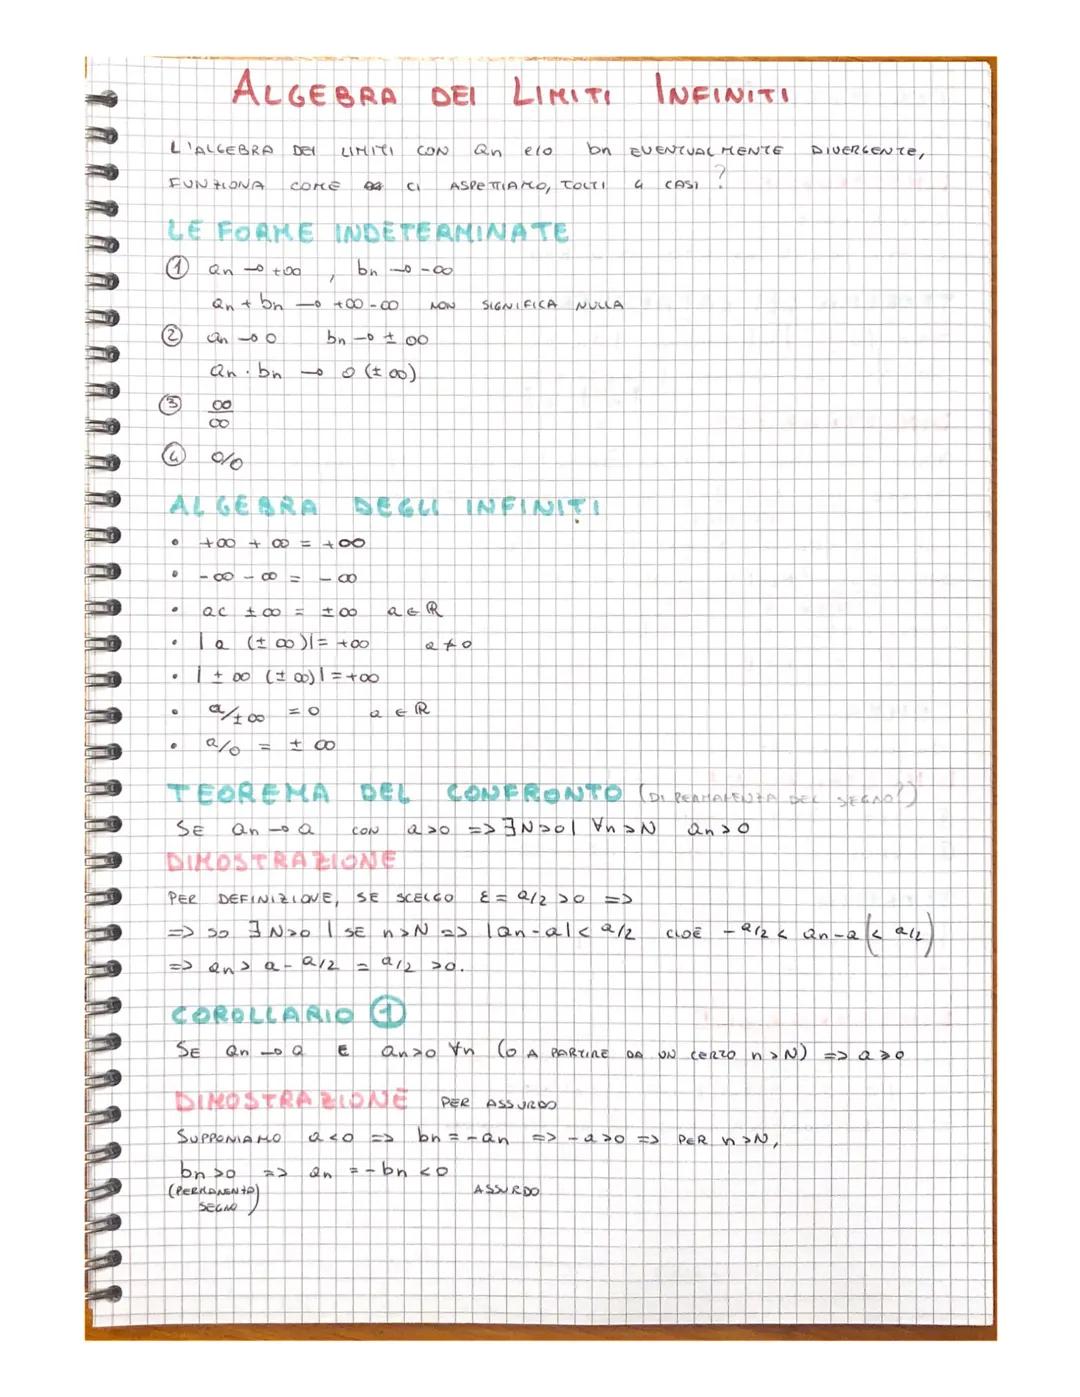 ALGEBRA DEI LIMITI INFINITI
L'ALGEBRA DEI LIMITI CON an e/o bn EVENTUALMENTE DIVERGENTE,
FUNZIONA COME CI ASPETTIAMO, TOLTI 4 CASI ?
LE FORME INDETERMINATE
① an → +∞ , bn → -∞
an + bn → +∞ -∞ NON SIGNIFICA NULLA
② an → 0 bn → ± ∞
an · bn → 0 (± ∞)
③ ∞/∞
④ 0/0
ALGEBRA DEGLI INFINITI
• +∞ + ∞ = +∞
• -∞ - ∞ = -∞
• ac ± ∞ = ±∞ a ∈ ℝ
• | a (± ∞)| = +∞ a ≠ 0
• | ± ∞ (± ∞)| = +∞
• a/±∞ = 0 a ∈ ℝ
• a/0 = ± ∞
TEOREMA DEL CONFRONTO (DI PERMANENZA DEL SEGNO?)
SE an → a CON a>0 => ∃N>0 | ∀n>N an>0
DIMOSTRAZIONE
PER DEFINIZIONE, SE SCELGO ε = a/2 >0 =>
=> so ∃N>0 | SE n>N => |an-a| < a/2 CIOÈ -a/2 < an-a (< a/2)
=> an > a - a/2 = a/2 >0.
COROLLARIO ①
SE an → a E an>0 ∀n (O A PARTIRE DA UN CERTO n>N) => a ≥ 0
DIMOSTRAZIONE PER ASSURDO
SUPPONIAMO a<0 => bn = -an => -a>0 => PER n>N,
bn>0 => an = -bn <0
(PERMANENZA SEGNO) ASSURDO